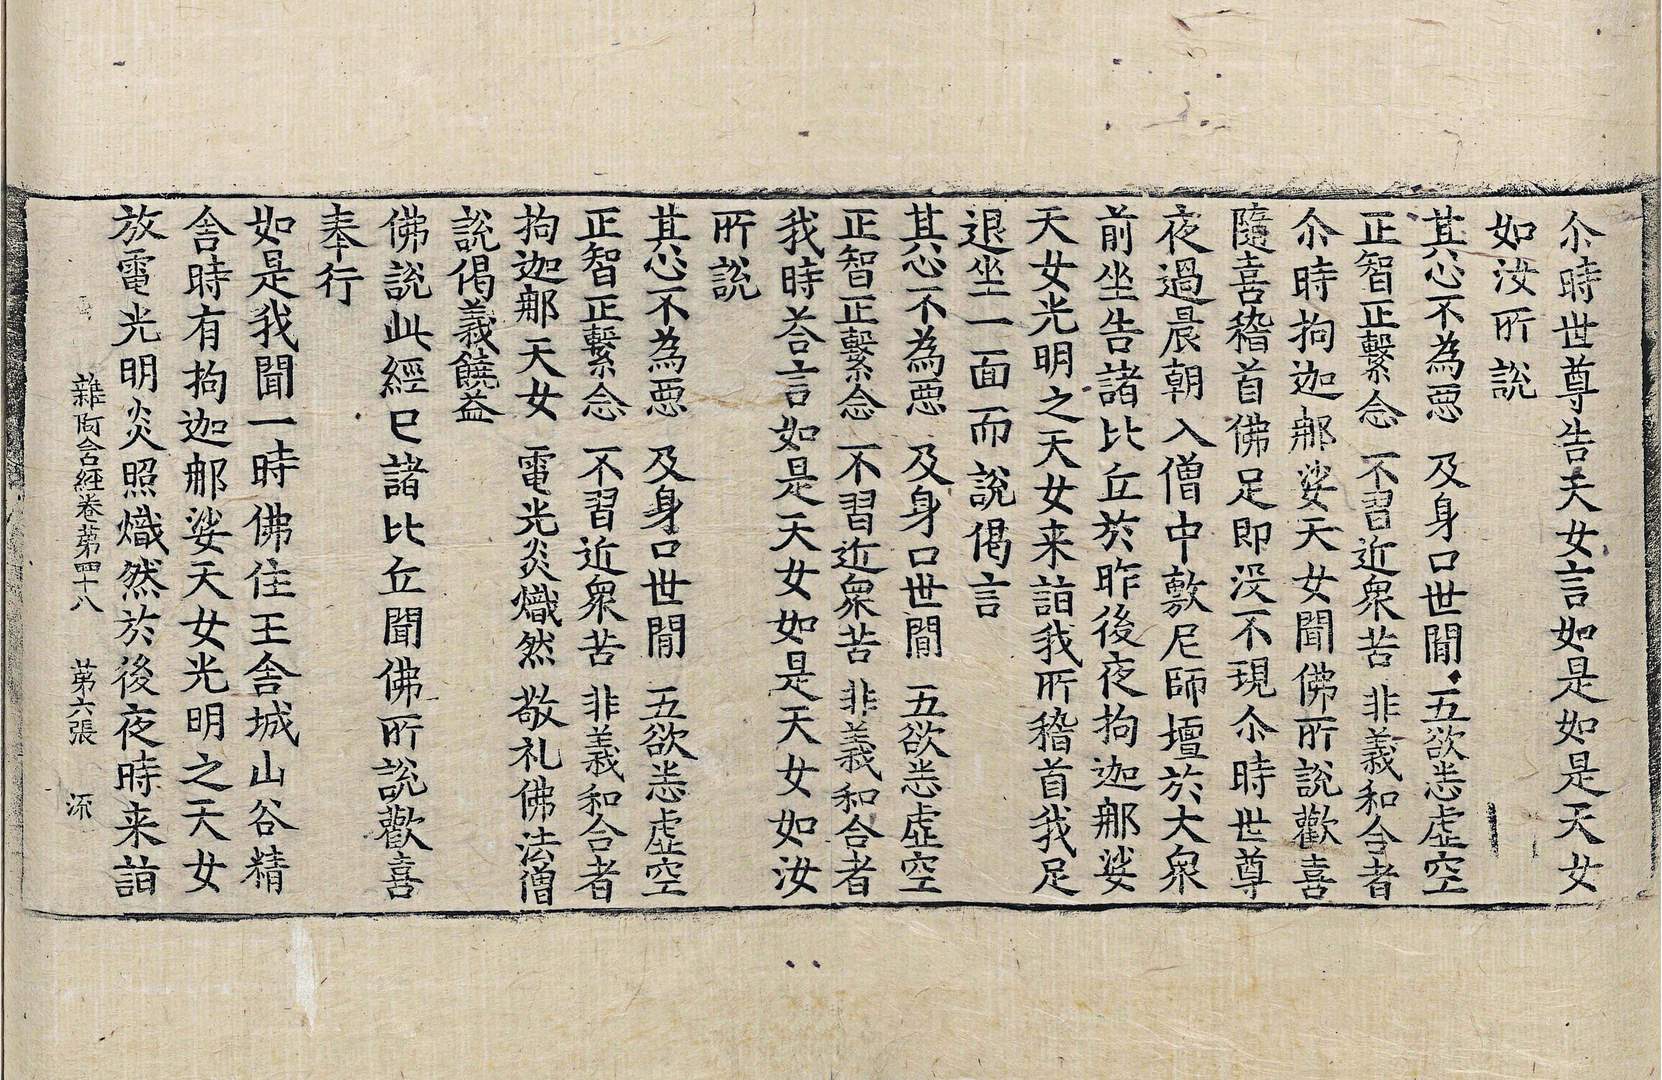 尒時世尊告天女言如是如是天女
如汝所說
其心不為惡 及身口世閒 五欲悉虛空
正智正繫念 不習近衆苦 非義和合者
尒時拘迦那娑天女聞佛所說歡喜
隨喜稽首佛足即没不現尒時世尊
夜過晨朝入僧中敷尼師壇於大衆
前坐告諸比丘於昨後夜拘迦那娑
天女光明之天女来詣我所稽首我足
退坐一面而說偈言
其心不為惡 及身口世閒 五欲悉虛空
正智正繫念 不習近衆苦 非義和合者
我時荅言如是天女如是天女如汝
所說
其心不為惡 及身口世閒 五欲悉虛空
正智正繫念 不習近衆苦 非義和合者
拘迦那天女 電光炎熾然 敬礼佛法僧
說偈義饒益
佛說此經已諸比丘聞佛所說歡喜
奉行
如是我聞一時佛住王舍城山谷精
舍時有拘迦那娑天女光明之天女
放電光明炎照熾然於後夜時来詣
雜阿含經卷第四十八 第六張 流